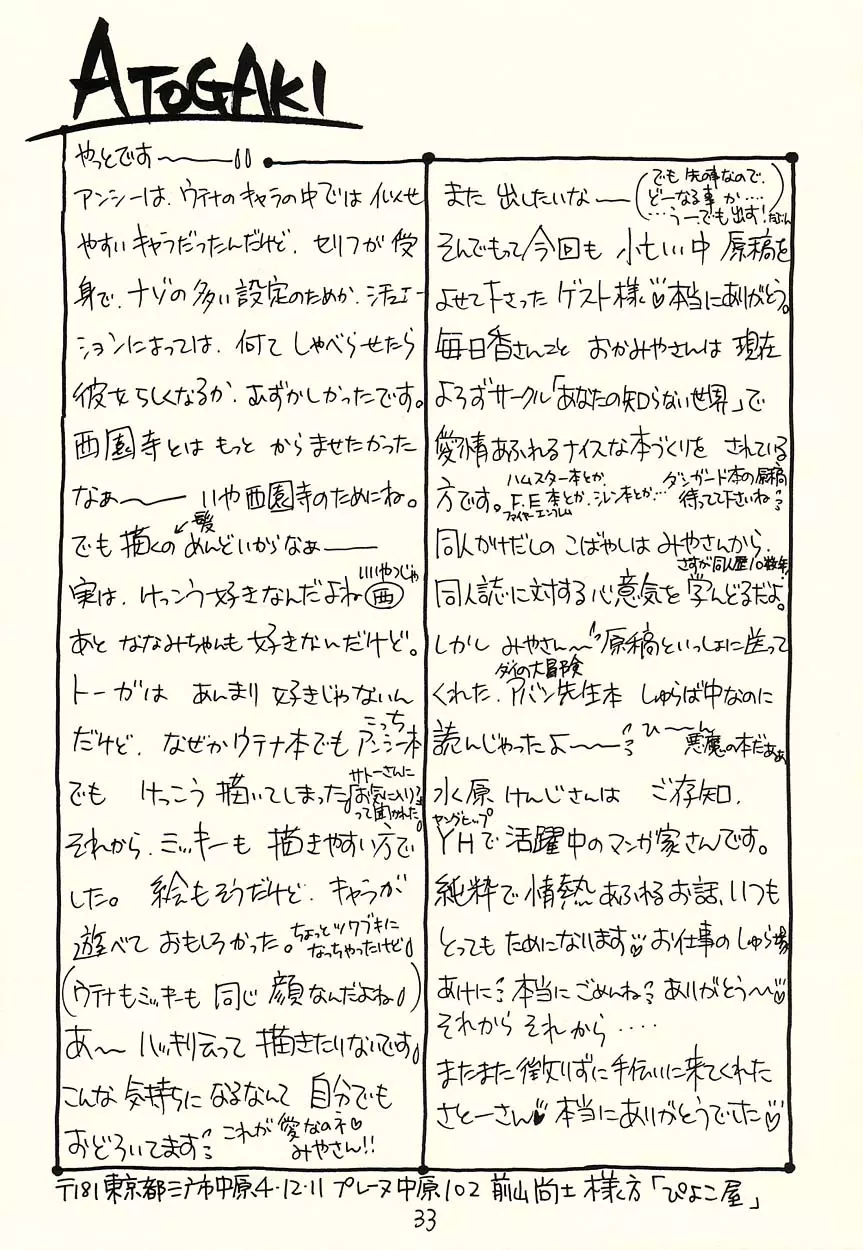 ATOGAKI
やっとです〜〜
アンシーは、ウテナのキャラの中では イメせ
やすいキャラだったんだけど、セリフが 受
身で、ナゾの多い設定のためか、シチュエー
ションによっては、何て しゃべらせたら
彼女らしくなるか、むずかしかったです。
西園寺とは もっと からませたかった
なぁ〜〜 いや西園寺のためにね。
でも 描くの めんどいからなぁ——
髪
実は、けっこう好きなんだよね 西
いいやつじゃ
あと ななみちゃんも 好きなんだけど。
トーガは あんまり 好きじゃないん
だけど、なぜかウテナ本でも アンシー本
こっち
でも けっこう 描いてしまった
サトーさんに
お気に入り?
って聞かれた。
それから、ミッキーも 描きやすい方で
した。 絵もそうだけど、キャラが
遊べて おもしろかった。
ちょっとツワブキに
なっちゃったけど
(ウテナもミッキーも 同じ 顔なんだよね)
あ〜 ハッキリ云って 描きたりないです
こんな 気持ちに なるなんて 自分でも
おどろいてます
これが 愛なのネ♡
みやさん!!
また 出したいな〜
(でも 先の事なので、
どーなる事 か‥‥
‥‥うーでも出す!たぶん)
そんでもって今回も 忙しい中 原稿を
よせて下さった ゲスト様〻♡本当にありがとう。
毎日香さんこと おかみやさんは 現在
よろずサークル「あなたの知らない世界」で
愛情あふれるナイスな本づくりを されている
方です。
ハムスター本とか
F.E 本とか、シレン本とか‥‥
ファイヤーエンブレム
ダンガード本の原稿
待ってて下さいね
同人かけだしの こばやしは みやさんから、
さすが同人屋10数年!
同人誌に対する心意気を 学んどるだよ。
しかし みやさん〜 原稿といっしょに送って
くれた、アバン先生本 しゅらば中なのに
ダイの大冒険
読んじゃったよ〜〜
ひ〜〜ん
悪魔の本だぁぁ
水原 けんじさんは ご存知、
YHで 活躍中のマンガ家さんです。
ヤングヒップ
純粋で 情熱あふれるお話、いつも
とっても ためになります♡ お仕事のしゅら場
あけに 本当に ごめんね ありがとう〜♡
それから それから‥‥
またまた 懲りずに 手伝いに来てくれた
さとーさん♥ 本当にありがとうでした♡
〒181 東京都三鷹市中原4・12・11 プレーヌ中原102 前山尚士 様方「ぴよこ屋」
33